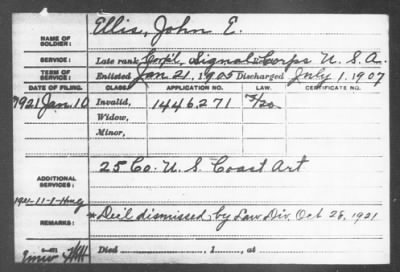 NAME OF SOLDIER: Ellis, John E.
SERVICE: Late rank, Corp'l, Signal Corps U. S. A.
TERM OF SERVICE: Enlisted Jan 21, 1905 Discharged July 1, 1907
DATE OF FILING. CLASS. APPLICATION NO. LAW. CERTIFICATE NO.
1921 Jan. 10 Invalid, 1446271
Widow,
Minor,
ADDITIONAL SERVICES: 25 Co. U. S. Coast Art
1921-11-1-
REMARKS: * Dec'l dismissed by Law Div. Oct 28, 1921
Died , 1 , at